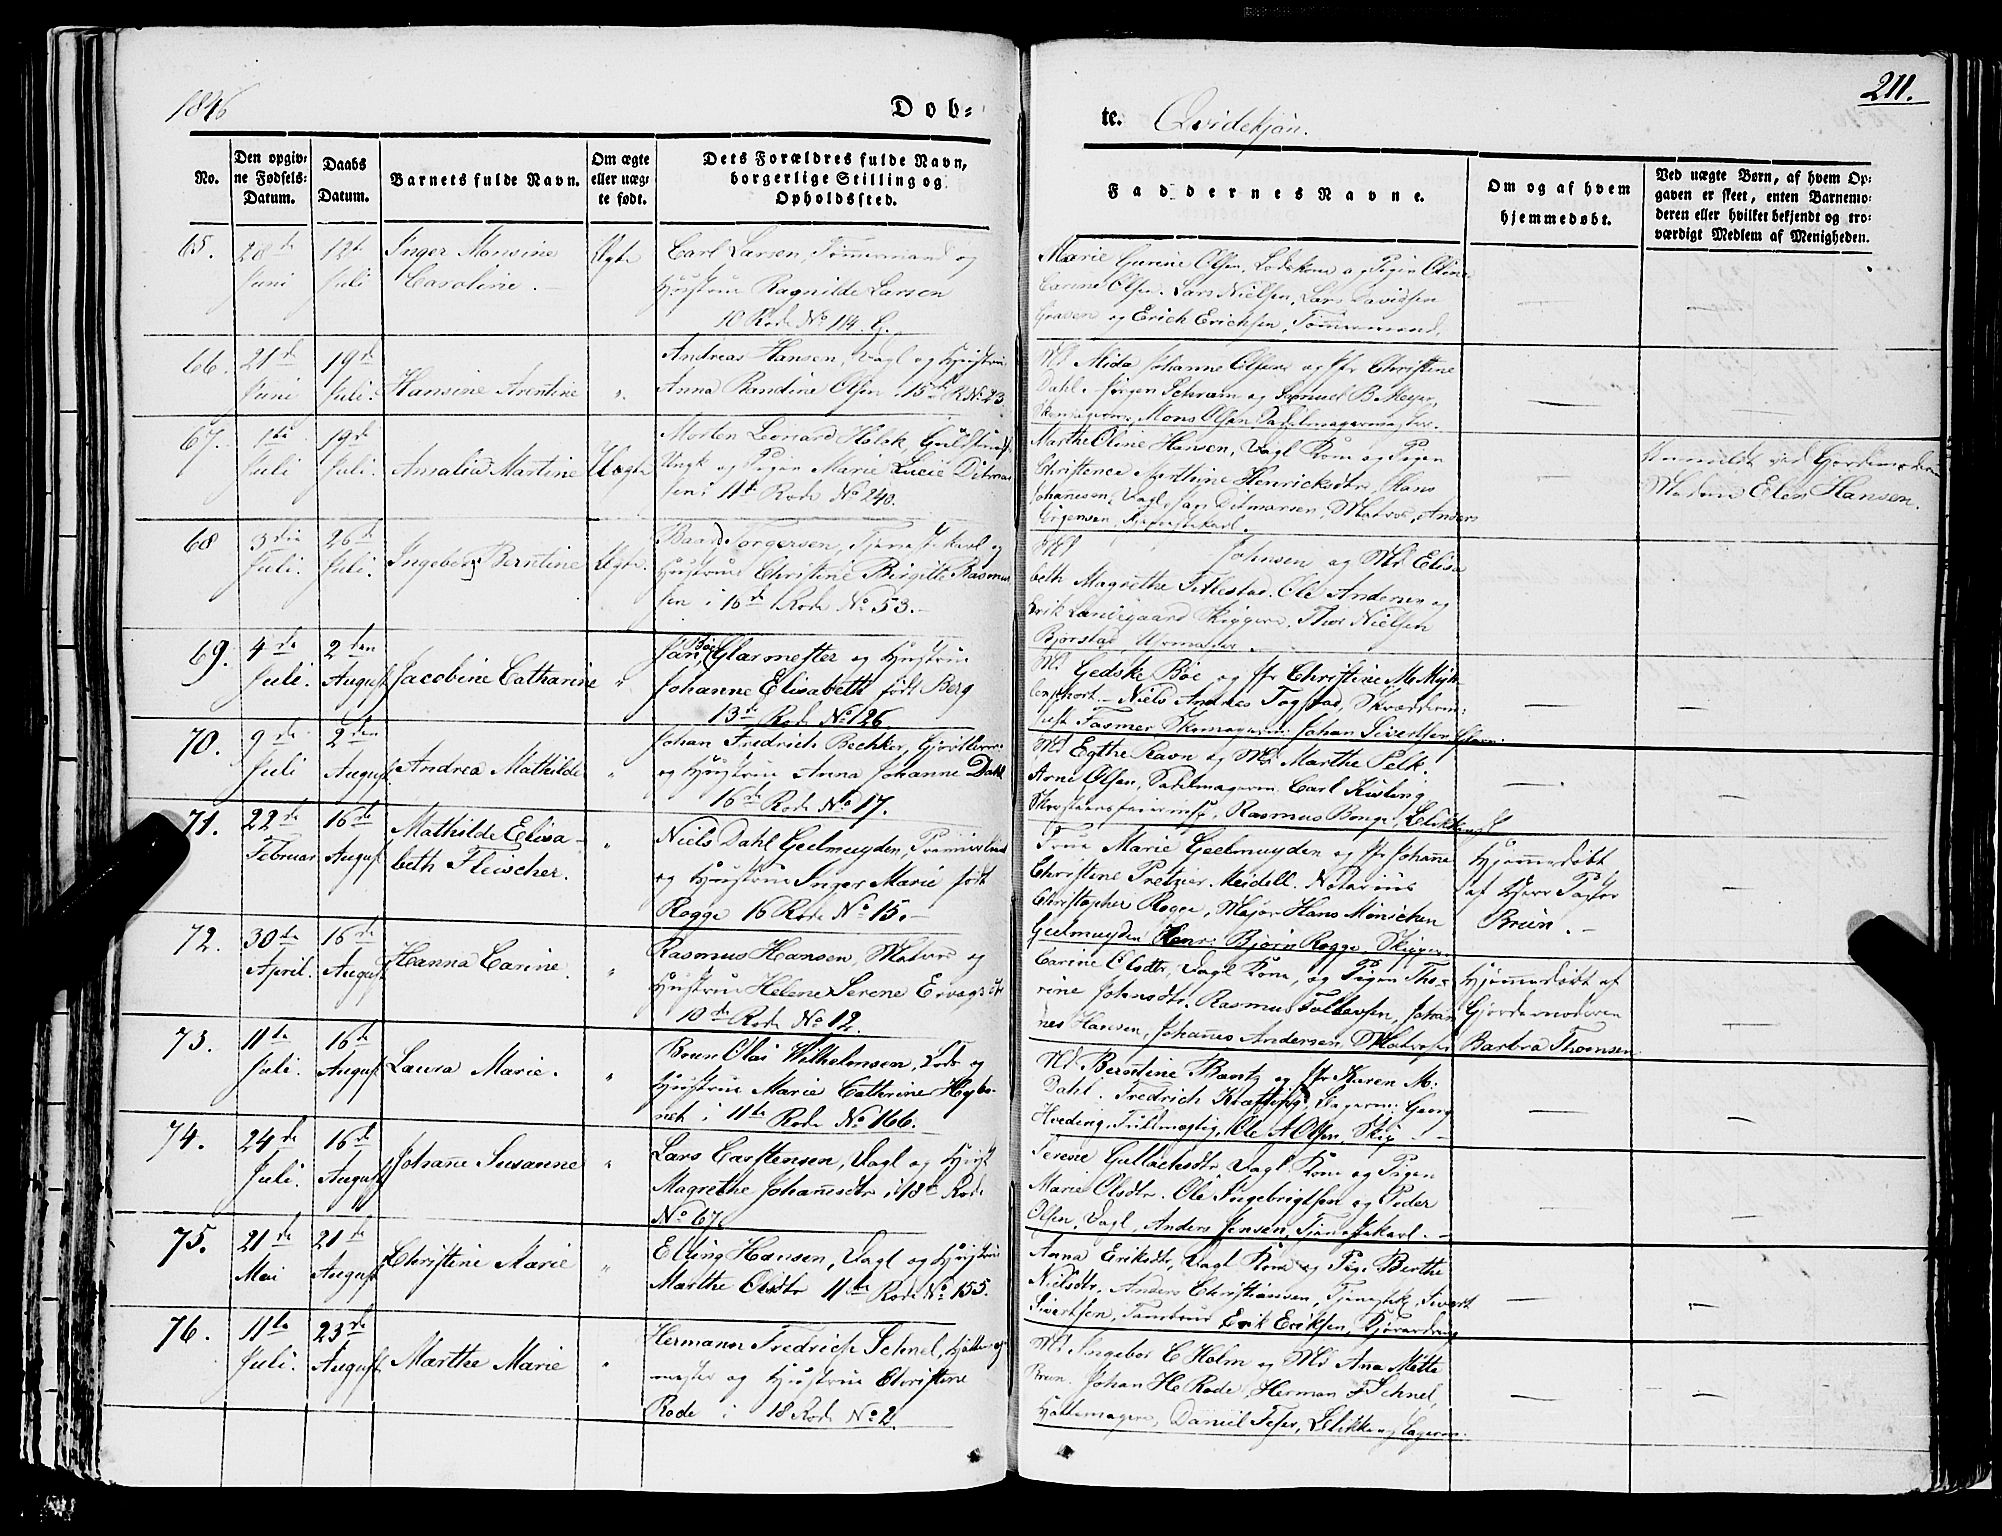 1846
Döb-
te. Qvindekjøn.
211.
No.
Den opgiv-
ne Fødsels-
Datum.
Daabs
Datum.
Barnets fulde Navn.
Om ægte
eller uæg-
te født.
Dets Forældres fulde Navn,
borgerlige Stilling og
Opholdssted.
Faddernes Navne.
Om og af hvem
hjemmedøbt.
Ved uægte Børn, af hvem Op-
gaven er skeet, enten Barnemo-
deren eller hvilket bekjendt og tro-
værdigt Medlem af Menigheden.
65. 28de Juni
12te Juli
Inger Monsine
Caroline.
Ægte
Carl Larsen, Tømmermand og
Hustrue Ragnilde Larsen
10 Rode No 114. G.
Marie Gurine Olsen, Lodskone og Pigen Oline
Carine Olsen. Lars Nielsen, Lars Davidsen
Graven og Erich Erichsen, Tømmermænd.
66. 21de Juni
19de Juli.
Hansine Arentine
"
Andreas Hansen, Dagl og Hustrue
Anna Randine Olsen i 15de R No 23.
Md Alida Johanne Olsen og Jfr Christine
Dahl. Jørgen Schram og Samuel B. Meyer,
Skomagerm, Mons Olsen Sadelmagermester.
67. 1te Juli
19de Juli.
Amalia Martine
Uægte
Morten Leonard Holck, Guldsmeds
Ungk og Pigen Marie Lucie Ditmar
sen i 11te Rode No 240.
Marthe Oline Hansen, Dagl Kone og Pigen
Christence Marthine Henricksdtr, Hans
Johanesen, Dagl, Jan Ditmarsen, Matros, Anders
Jørgensen, Tjenestekarl.
Anmeldt ved Gjordemoderen
Madam Elen Hansen.
68 3die Juli.
26de Juli.
Ingeborg Berntine
Ægte.
Baard Torgersen, Tjenestekarl og
Hustrue Christine Birgitte Rasmus
sen i 16de Rode No 53.
Md Johnsen og Md Elisa
beth Magrethe Tillestad. Ole Andersen og
Erik Landegaard Skiggere. Thor Nielsen
Bjørstad Uhrmager.
69. 4de Juli.
2den August
Jacobine Catharine
"
Jan Bøe, Glarmester og Hustrue
Johanne Elisabeth født Berg
13de Rode No 126.
Md Gedske Bøe og Jfr Christine M. Myk
lenshort. Niels Andreas Togstad, Skrædderm:
Fasmer, Skomagerm: Johan Sivertsen
70. 9de Juli
2den August
Andrea Mathilde
"
Johan Fredrich Bechker, Gjørtlerm:
og Hustrue Anna Johanne Dahl
16de Rode No 17.
Md Egthe Ravn og Md Marthe Selk.
Arne Olsen, Sadelmagerm. Carl Kisling
Skorsteensfeierm, Rasmus Bonge, Blikkensl
71. 22de Februar
16de August
Mathilde Elisa-
beth Fleischer.
"
Niels Dahl Geelmuyden, Premierlieut
og Hustrue Inger Marie født
Rogge 16 Rode No 15.
Frue Marie Geelmuyden og Jfr Johanne
Christine Pretzier Meidell. Notarius
Christopher Rogge, Major Hans Mønichen
Geelmuyden Henr: Bjørn Rogge Skipper
Hjemmedøbt
af Herr Pastor
Bruun.
72. 30te April.
16de August
Hanna Carine
"
Rasmus Hansen, Matros og
Hustrue Helene Serene Ervagsdtr
10de Rode No 12.
Carine Olsdtr, Dagl Kone, og Pigen Tho-
rine Johnsdtr. Rasmus Tollevsen, Johan
nes Hansen, Johannes Andersen Matroser
Hjemmedøbt af
Gjordemoderen
Barbra Thomsen
73. 11te Juli.
16de August
Laura Marie.
"
Brun Olai Wilhelmsen, Lods og
Hustrue Marie Cathrine Hegbo
net i 11te Rode No 166.
Md Berntine Bantz og Jfr Karen M.
Dahl. Fredrich Krafting, Bagerm: Georg
Hveding, Fuldmægtig, Ole A Olsen, Skip
74. 24de Juli.
16de August
Johanne Susanne
"
Lars Carstensen, Dagl og Hust
Magrethe Johannsdtr i 18de Rode
No 67.
Serene Gullachsdtr, Dagl Kone og Pigen
Marie Olsdtr. Ole Ingebrigtsen og Peder
Olsen, Dagl, Anders Jensen, Tjenestekarl.
75. 21de Mai
21de August
Christine Marie
"
Elling Hansen, Dagl og Hustrue
Marthe Olsdtr 11te Rode No 155.
Anna Eriksdtr, Dagl Kone og Pig: Berthe
Nielsdtr, Anders Christiansen, Tjenestk, Sivert
Sivertsen, Tambour Erik Eriksen,
76. 11te Juli.
23de August
Marthe Marie
"
Hermann Fredrich Schnel, Hattemag
mester og Hustrue Christine
Rode i 18 Rode No 2.
Md Ingebor C Holm og Md Ana Mette
Brun. Johan H. Rode, Herman F Schnel,
Hattemagere, Daniel Teser,